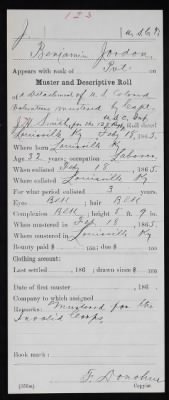 123
J. | U.S.C.T.
Benjamin Jordon
Appears with rank of Pvt. on
Muster and Descriptive Roll
of Detachment of U. S. Colored
Volunteers mustered by Capt.
Smith, for the Roll dated
Louisville Ky Feb 18, 1865.
Where born Louisville Ky
Age 32 years; occupation Laborer
When enlisted Feby 18, 1865.
Where enlisted Louisville Ky
For what period enlisted 3 years.
Eyes Blk; hair Blk
Complexion Blk; height 5 ft. 9 in.
When mustered in Feb 18, 1865.
Where mustered in Louisville Ky
Bounty paid $ 100; due $ 100
Clothing account:
Last settled , 186 ; drawn since $ 100
Date of first muster , 186 .
Company to which assigned
Remarks: Mustered for the
Invalid Corps.
Book mark:
F. Donohue
(356m) Copyist.